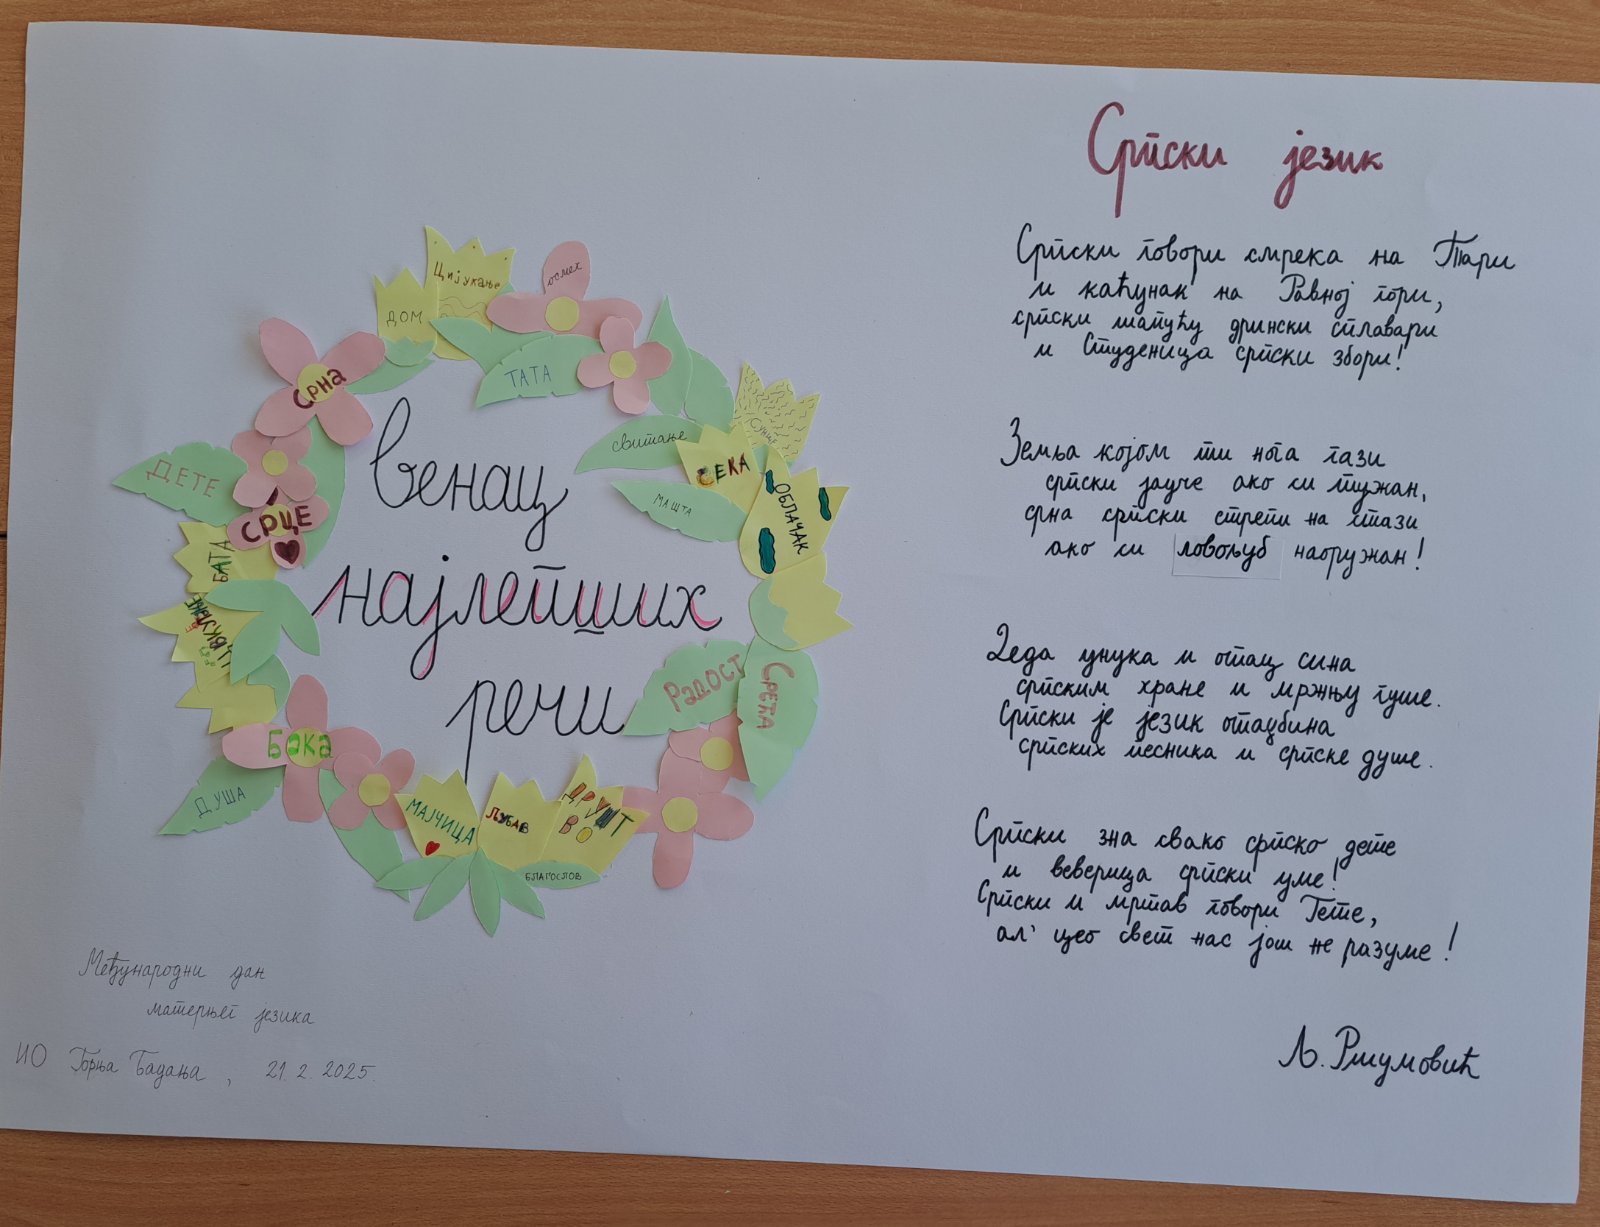 Цијукање
осмех
ДОМ
ТАТА
Срна
свитање
Сунце
СЕКА
МАШТА
ОБЛАЧАК
ДЕТЕ
СРЦЕ
БАТА
ЦВРКУТАЊЕ
РаДОСТ
СРЕЋА
Бака
ДУША
МАЈЧИЦА
ЉУБАВ
ДРУШТ
ВО
БЛАГОСЛОВ
Венац
најлепших
речи
Међународни дан
матерњег језика
ИО Горња Бадања, 21. 2. 2025.
Српски језик
Српски говори смрека на Тари
и каћунак на Равној гори,
српски шапућу дрински сплавари
и Студеница српски збори!
Земља којом ти нога гази
српски јауче ако си тужан,
срна српски стрепи на стази
ако си ловољуб наоружан!
Деда унука и отац сина
српским хране и мржњу гуше.
Српски је језик отаџбина
српских песника и српске душе.
Српски зна свако српско дете
и веверица српски уме!
Српски и мртав говори Гете,
ал' цео свет нас још не разуме!
Љ. Ршумовић